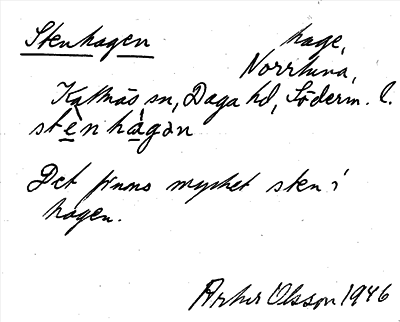 Stenhagen hage,
Norrtuna,
Kattnäs sn, Daga hd, Söderm. l.
stènhágan
Det finns mycket sten i
hagen.
Arthur Olsson 1946